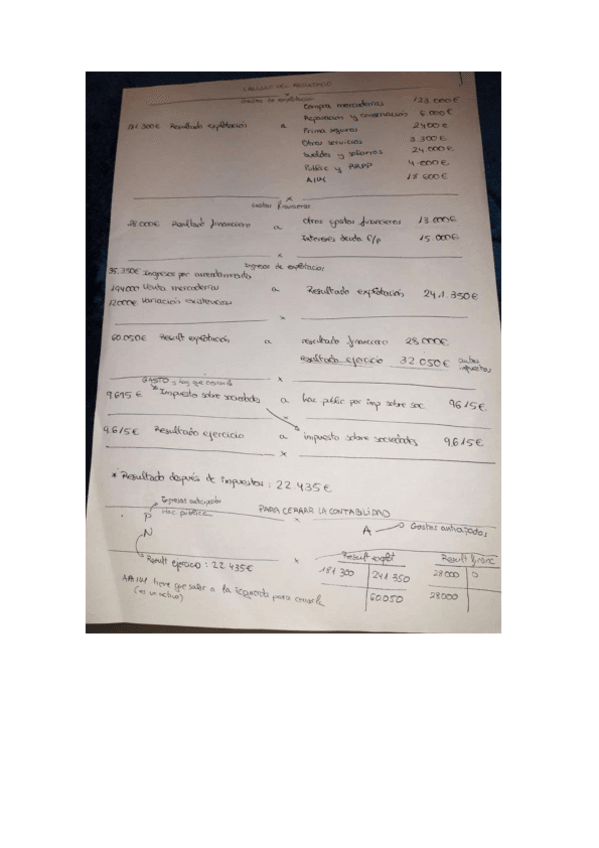 CALCULO DEL RESULTADO
Gastos de explotación
Compra mercaderías 123.000€
Reparación y conservación 6.000€
181.300€ Resultado explotación a Prima seguros 2400€
Otros servicios 3.300€
Sueldos y salarios 24.000€
Public y RRPP 4.000€
18 600€
x
Gastos financieros
28.000€ Resultado financiero a Otros gastos financieros 13.000€
Intereses deuda 15.000€
x
Ingresos de explotación
35.350€ Ingresos por arrendamiento
194000 Venta mercaderías a Resultado explotación 241.350€
12000€ Variación existencias
x
60.050€ Result explotación a resultado financiero 28.000€
Resultado ejercicio 32.050€ antes impuestos
GASTO y hay que
x
9615 € Impuesto sobre sociedades a hac public por imp sobre soc. 9615€
x
9.615€ Resultado ejercicio a impuesto sobre sociedades 9.615€
x
* Resultado después de impuestos: 22.435€
Ingresos anticipados
P Hac pública
PARA CERRAR LA CONTABILIDAD
x
A Gastos anticipados
N
Result ejercicio: 22 435€
x
Result explot Result financ
181 300 241 350 28000 0
60.050 28000
tiene que salir a la izquierda para
(es un activo)